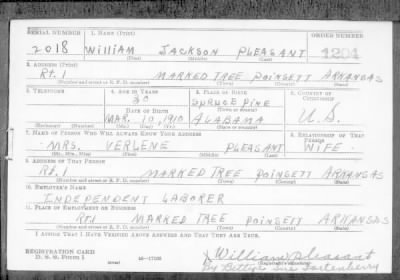 SERIAL NUMBER 1. NAME (Print) ORDER NUMBER
2018 William JACKSON PLEASANT 1201
(First) (Middle) (Last)
2. ADDRESS (Print)
Rt. 1 MARKED TREE POINSETT ARKANSAS
(Number and street or R. F. D. number) (Town) (County) (State)
3. TELEPHONE 4. AGE IN YEARS 5. PLACE OF BIRTH 6. COUNTRY OF CITIZENSHIP
30 SPRUCE PINE
DATE OF BIRTH (Town or county)
MAR. 10, 1910 ALABAMA U.S.
(Exchange) (Number) (Mo.) (Day) (Yr.) (State or country)
7. NAME OF PERSON WHO WILL ALWAYS KNOW YOUR ADDRESS 8. RELATIONSHIP OF THAT PERSON
MRS. VERLENE PLEASANT WIFE
(Mr., Mrs., Miss) (First) (Middle) (Last)
9. ADDRESS OF THAT PERSON
Rt. 1 MARKED TREE POINSETT ARKANSAS
(Number and street or R. F. D. number) (Town) (County) (State)
10. EMPLOYER'S NAME
INDEPENDENT LABORER
11. PLACE OF EMPLOYMENT OR BUSINESS
Rt1 MARKED TREE POINSETT ARKANSAS
(Number and street or R. F. D. number) (Town) (County) (State)
I AFFIRM THAT I HAVE VERIFIED ABOVE ANSWERS AND THAT THEY ARE TRUE.
REGISTRATION CARD
D. S. S. Form 1 (over) 16-17105 William Pleasant
By Bettye Sue Fortenberry